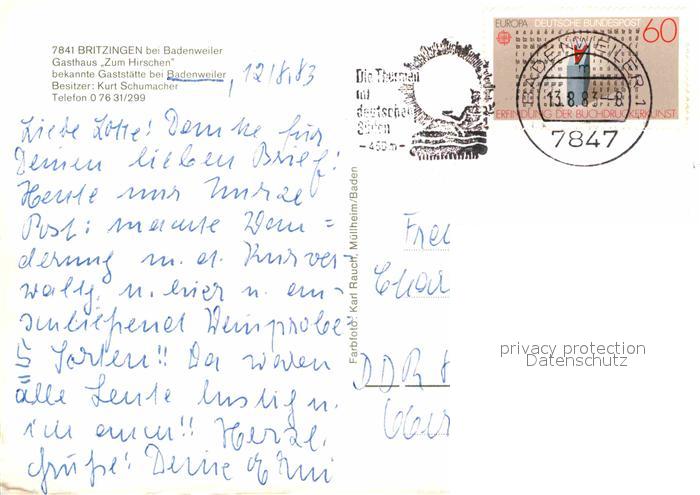 7841 BRITZINGEN bei Badenweiler
Gasthaus „Zum Hirschen"
bekannte Gaststätte bei Badenweiler
Besitzer: Kurt Schumacher
Telefon 0 76 31/299
, 12/8.83
Liebe Lotte! Danke für
Deinen lieben Brief!
Heute nur kurze
Post: machte Wan=
derung m. d. Kurver-
waltg. n. hier u. an-
schließend Weinprobe
5 Sorten!! Da waren
alle Leute lustig u.
ich auch!! Herzl.
Grüße! Deine Erni
Die Thermen
im
deutschen
Süden
- 450 m -
EUROPA DEUTSCHE BUNDESPOST 60
ERFINDUNG DER BUCHDRUCKERKUNST
BADENWEILER 1
13.8.83-8
7847
Farbfoto: Karl Rauch, Müllheim/Baden
Char
DDR 8
privacy protection
Datenschutz